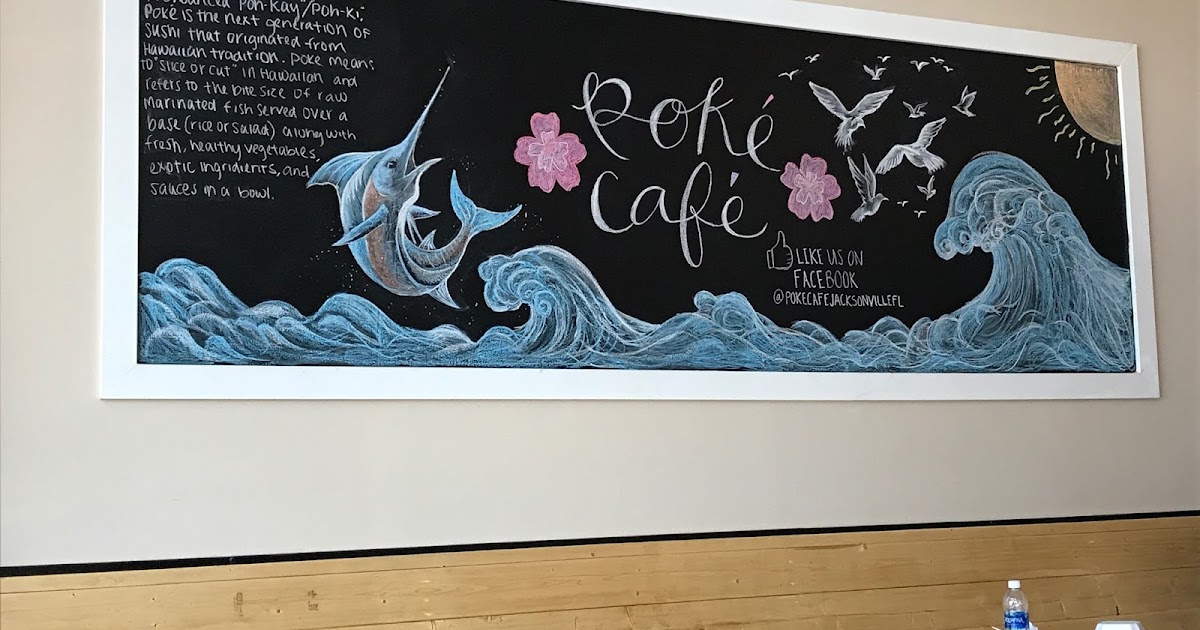 Poh-Kay"/"Poh-Ki",
Poké is the next generation of
sushi that originated from
Hawaiian tradition. Poke means
to "slice or cut" in Hawaiian and
refers to the bite size of raw
marinated fish served over a
base (rice or salad) along with
fresh, healthy vegetables,
exotic ingridients, and
sauces in a bowl.
Poké
Café
LIKE US ON
FACEBOOK
@POKECAFEJACKSONVILLEFL
AQUAFINA